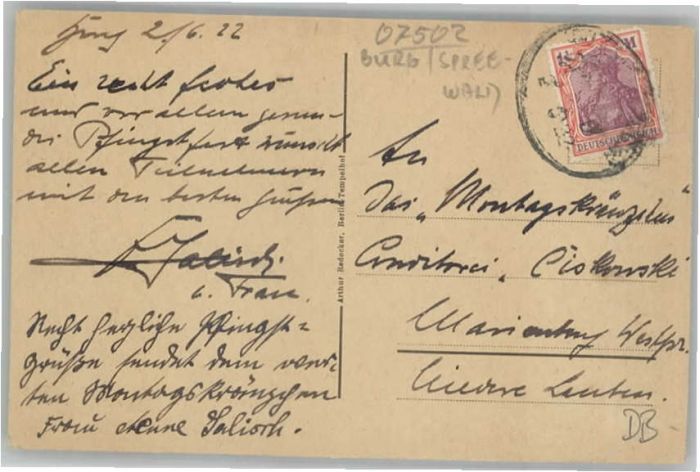 2/6. 22
Ein recht frohes
und vor allem gesun-
des Pfingstfest wünscht
allen Teilnehmern
mit den besten Grüßen
Salisch.
u. Frau.
Recht herzliche Pfingst=
grüße sendet dem wer-
ten Montagskränzchen
Frau Anne Salisch.
Arthur Redecker, Berlin-Tempelhof
07502
BURG/SPREE-
WALD
DEUTSCHES REICH
An
Das „Montagskränzchen"
Conditorei „Ciskowski
Marienburg Westpr.
Niedere Lauben.
DB